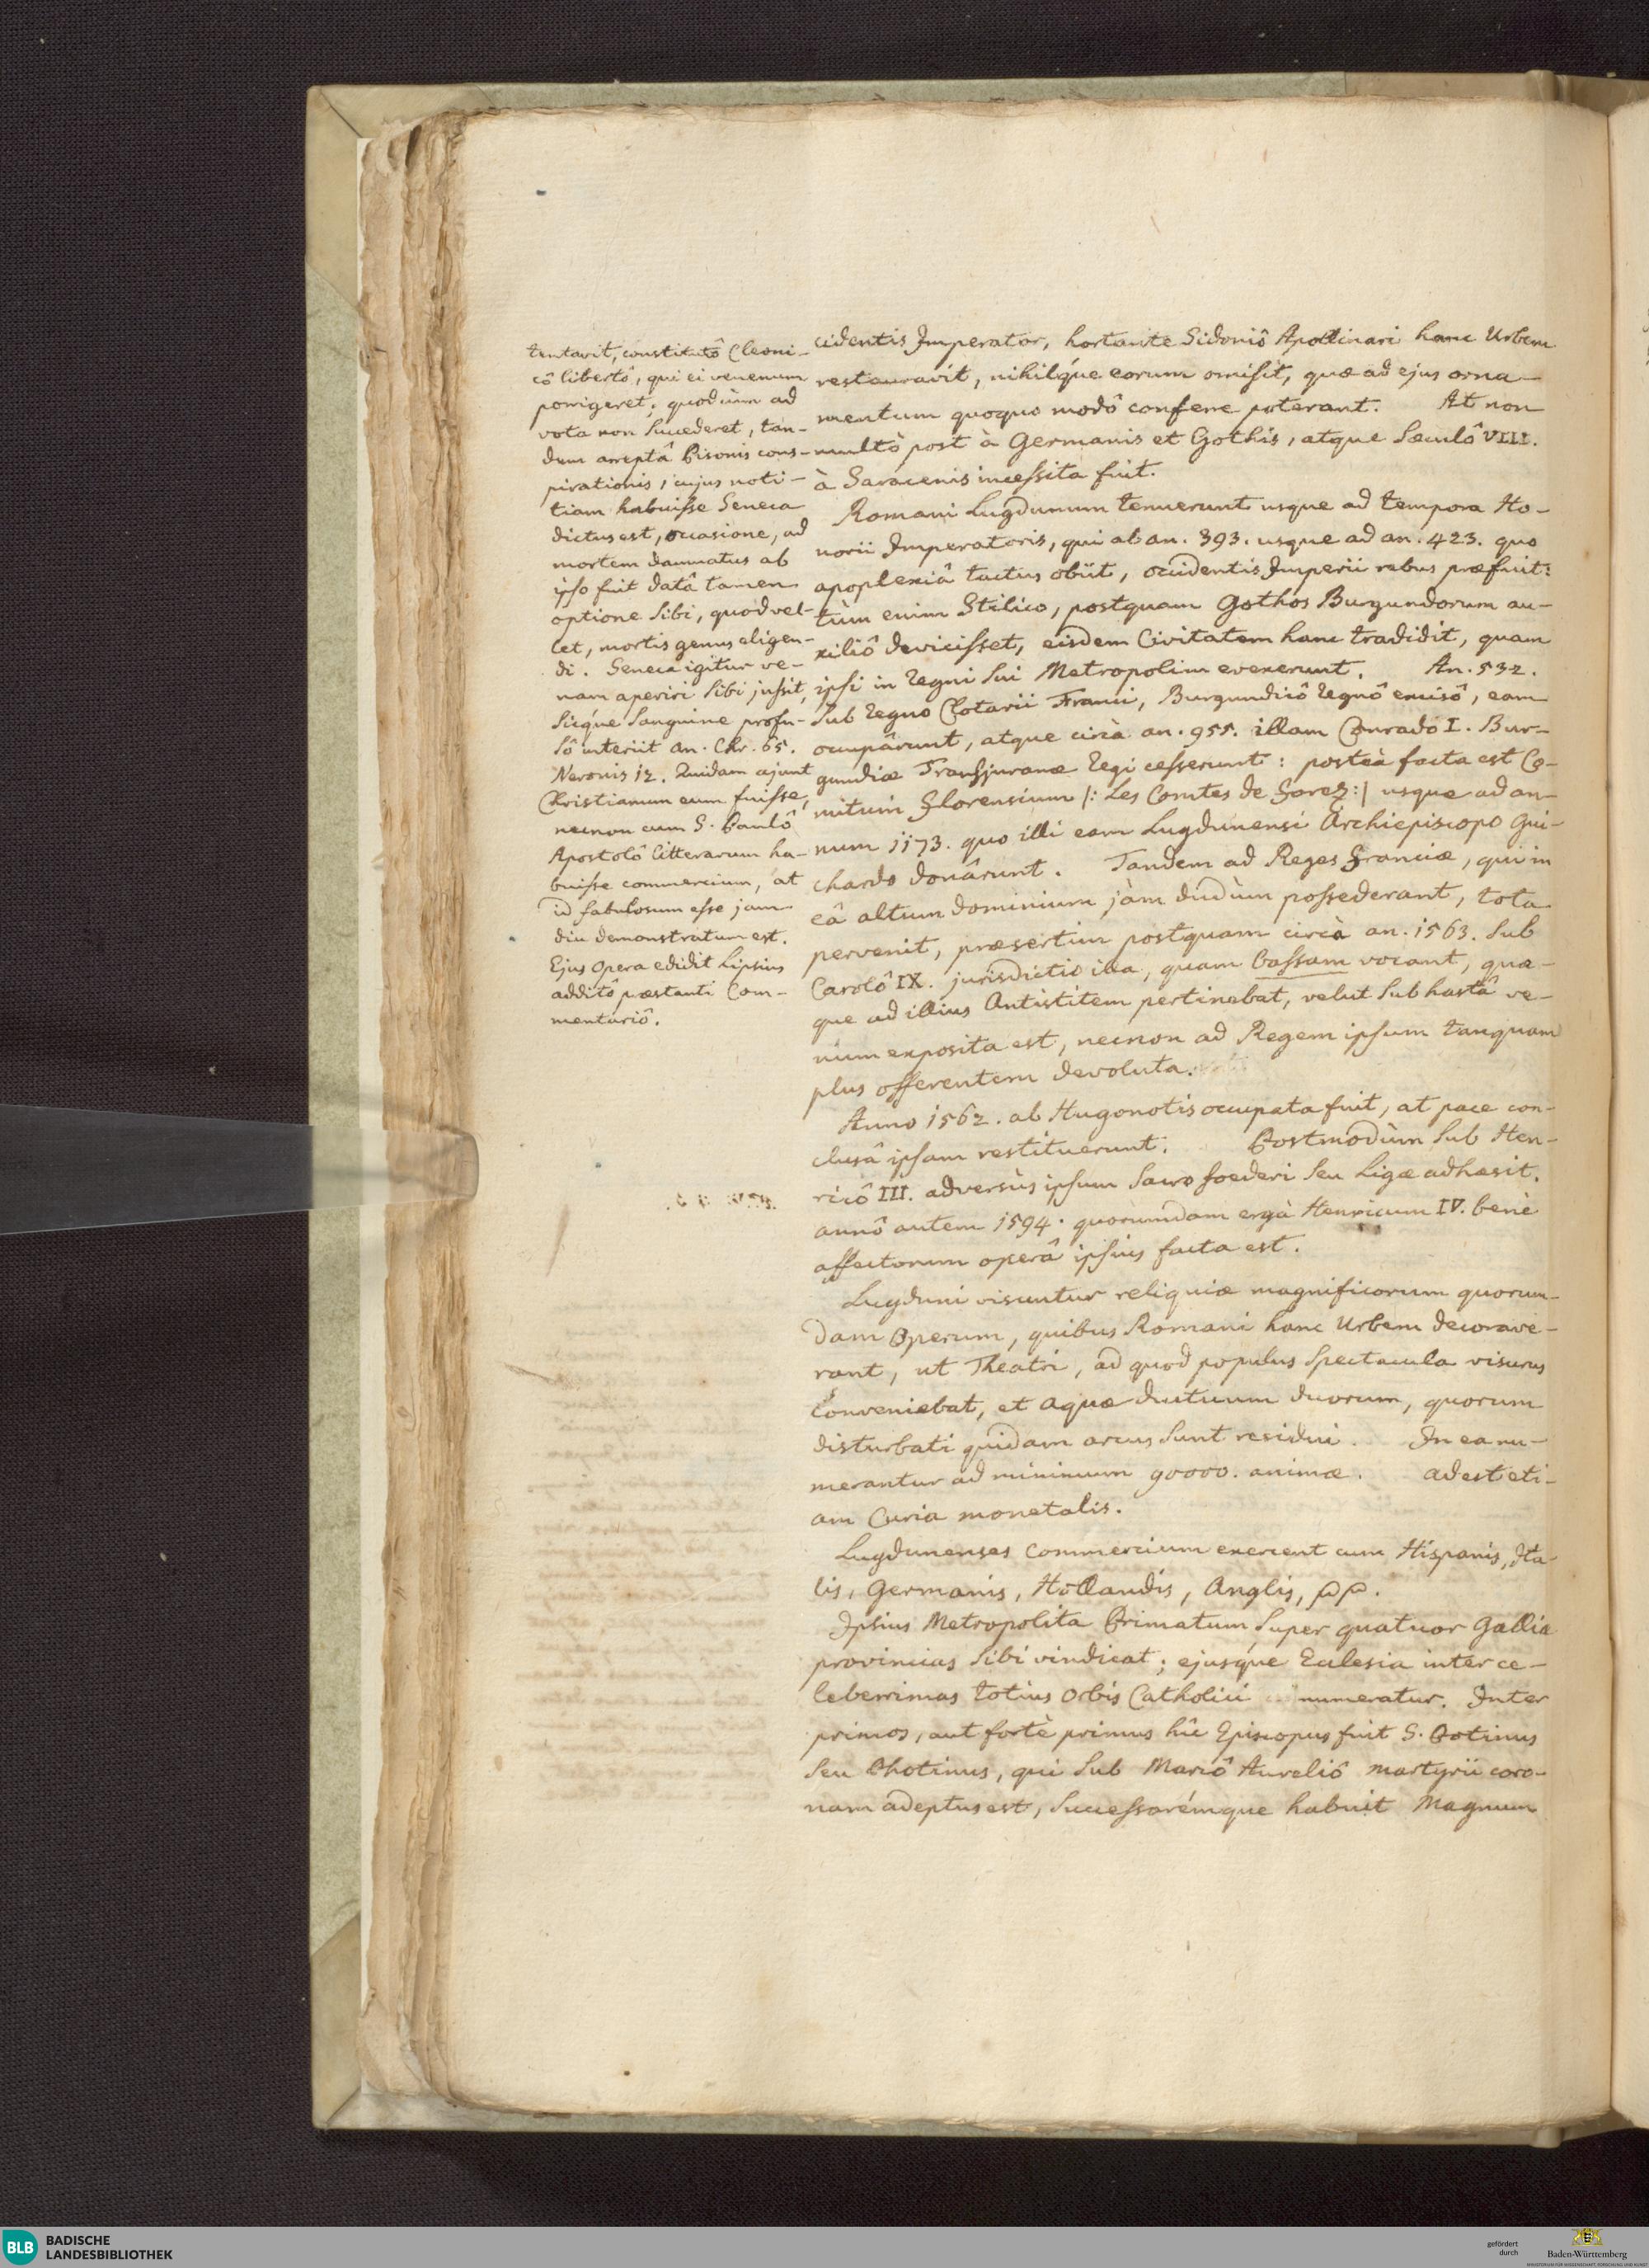 tentavit, constitutô Cleoni-
cô libertô, qui ei venenum
porrigeret; quod ùm ad
vota non succederet, tan-
dem arreptâ Pisonis cons-
pirationis, cujus noti-
tiam habuisse Seneca
dictus est, occasione, ad
mortem damnatus ab
ipso fuit datâ tamen
optione sibi, quod vel-
let, mortis genus eligen-
di. Seneca igitur ve-
nam aperiri sibi jussit,
sicque sanguine profu-
sô interiit an. Chr. 65.
Neronis 12. Quidam ajunt
Christianum eum fuisse,
necnon cum S. Paulô
Apostolô litterarum ha-
buisse commercium, at
id fabulosum esse jam
diu demonstratum est.
Ejus Opera edidit Lipsius
additô præstanti Com-
mentariô.
cidentis Imperator, hortante Sidoniô Apollinari hanc Urbem
restauravit, nihilque eorum omisit, quæ ad ejus orna-
mentum quoquo modô conferre poterant. At non
multò post à Germanis et Gothis, atque sæculô VIII.
à Saracenis incessita fuit.
Romani Lugdunum tenuerunt usque ad tempora Ho-
norii Imperatoris, qui ab an. 393. usque ad an. 423. quo
apoplexiâ tactus obiit, occidentis Imperii rebus præfuit:
tùm enim Stilico, postquam Gothos Burgundorum au-
xiliô devicisset, eisdem Civitatem hanc tradidit, quam
ipsi in regni sui Metropolim evexerunt. An. 532.
sub regno Clotarii Franci, Burgundicô regnô excisô, eam
occupârunt, atque circà an. 955. illam Conrado I. Bur-
gundiæ Transjuranæ regi cesserunt: posteà facta est Co-
mitum Florensium /: Les Comtes de Forez :/ usque ad an-
num 1173. quo illi eam Lugdunensi Archiepiscopo Gui-
chardo donârunt. Tandem ad Reges Franciæ, qui in
eâ altum dominium jàm dudùm possederant, tota
pervenit, præsertim postquam circà an. 1563. sub
Carolô IX. jurisdictio illa, quam bassam vocant, quæ-
que ad illius Antistitem pertinebat, velut sub hastâ ve-
num exposita est, necnon ad Regem ipsum tanquam
plus offerentem devoluta.
Anno 1562. ab Hugonotis occupata fuit, at pace con-
clusâ ipsam restituerunt. Postmodùm sub Hen-
ricô III. adversùs ipsum sacro foederi seu Ligæ adhæsit.
annô autem 1594. quorumdam ergà Henricum IV. benè
affectorum operâ ipsius facta est.
Lugduni visuntur reliquiæ magnificorum quorum-
dam Operum, quibus Romani hanc Urbem decorave-
rant, ut Theatri, ad quod populus spectacula visurus
conveniebat, et Aquæ ductuum duorum, quorum
disturbati quidam arcus sunt residui. In ea nu-
merantur ad minimum 90000. animæ. Adest eti-
am Curia monetalis.
Lugdunenses commercium exercent cum Hispanis, Ita-
lis, Germanis, Hollandis, Anglis,
Ipsius Metropolita Primatum super quatuor Galliæ
provincias sibi vindicat; ejusque Ecclesia inter ce-
leberrimas totius Orbis Catholici numeratur. Inter
primos, aut fortè primus hîc Episcopus fuit S. Potinus
seu Photinus, qui sub Marcô Aureliô martyrii coro-
nam adeptus est, successorémque habuit Magnum
BLB BADISCHE
LANDESBIBLIOTHEK
gefördert
durch
Baden-Württemberg